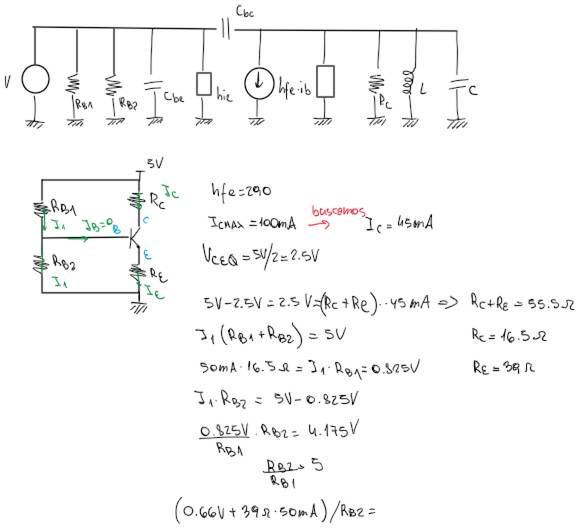 Cbc
V
RB1
RB2
Cbe
hie
hfe·ib
Rc
L
C
5V
RB1
Rc
Ic
I1
IB=0
B
C
E
RB2
I1
RE
IE
hfe=290
ICMAX=100mA → buscamos Ic=45mA
VCEQ=5V/2=2.5V
5V-2.5V=2.5V=(Rc+Re)··45mA => Rc+RE=55.5Ω
I1(RB1+RB2)=5V Rc=16.5Ω
50mA·16.5Ω=I1·RB1=0.825V RE=39Ω
I1·RB2=5V-0.825V
0.825V/RB1·RB2=4.175V
RB2/RB1=5
(0.66V+39Ω·50mA)/RB2=